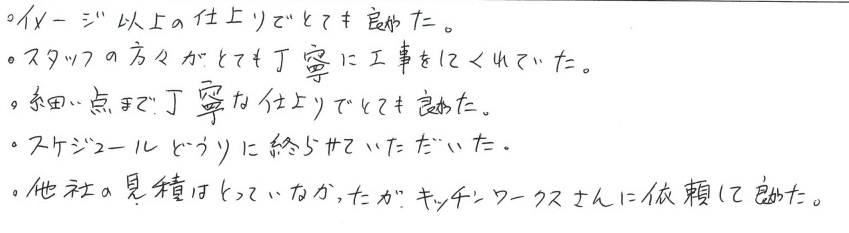 。イメージ以上の仕上りでとても良かった。
。スタッフの方々がとても丁寧に工事をしてくれていた。
。細い点まで丁寧な仕上りでとても良かった。
・スケジュールどうりに終らせていただいた。
。他社の見積はとっていなかったが、キッチンワークスさんに依頼して良かった。